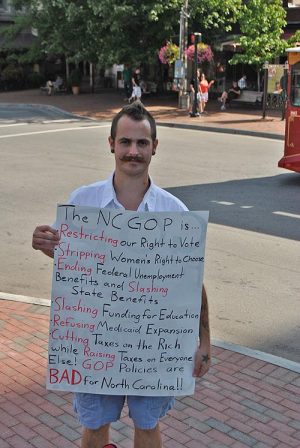 The NCGOP is...
Restricting our Right to Vote
Stripping Women's Right to Choose
Ending Federal Unemployment
Benefits and Slashing
State Benefits
Slashing Funding for Education
Refusing Medicaid Expansion
Cutting Taxes on the Rich
while Raising Taxes on Everyone
Else! GOP Policies are
BAD for North Carolina!!